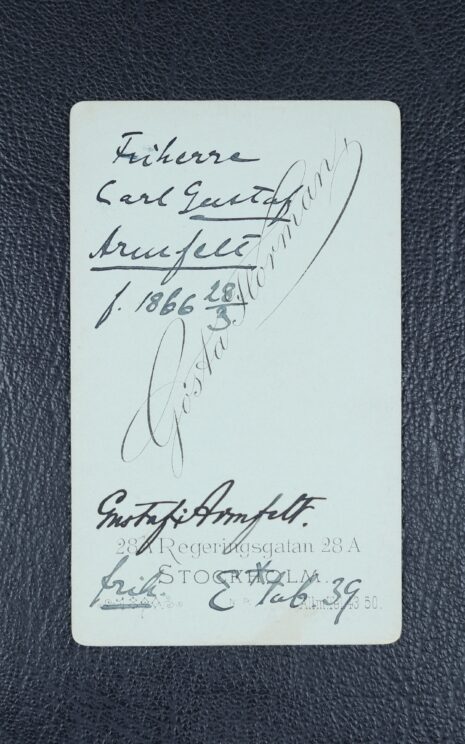 Friherre
Carl Gustaf
Armfelt
f. 1866 28/3
Gösta Florman
Gustaf Armfelt.
28A Regeringsgatan 28 A
STOCKHOLM.
frih. Tab 39
Allm. 43 50.